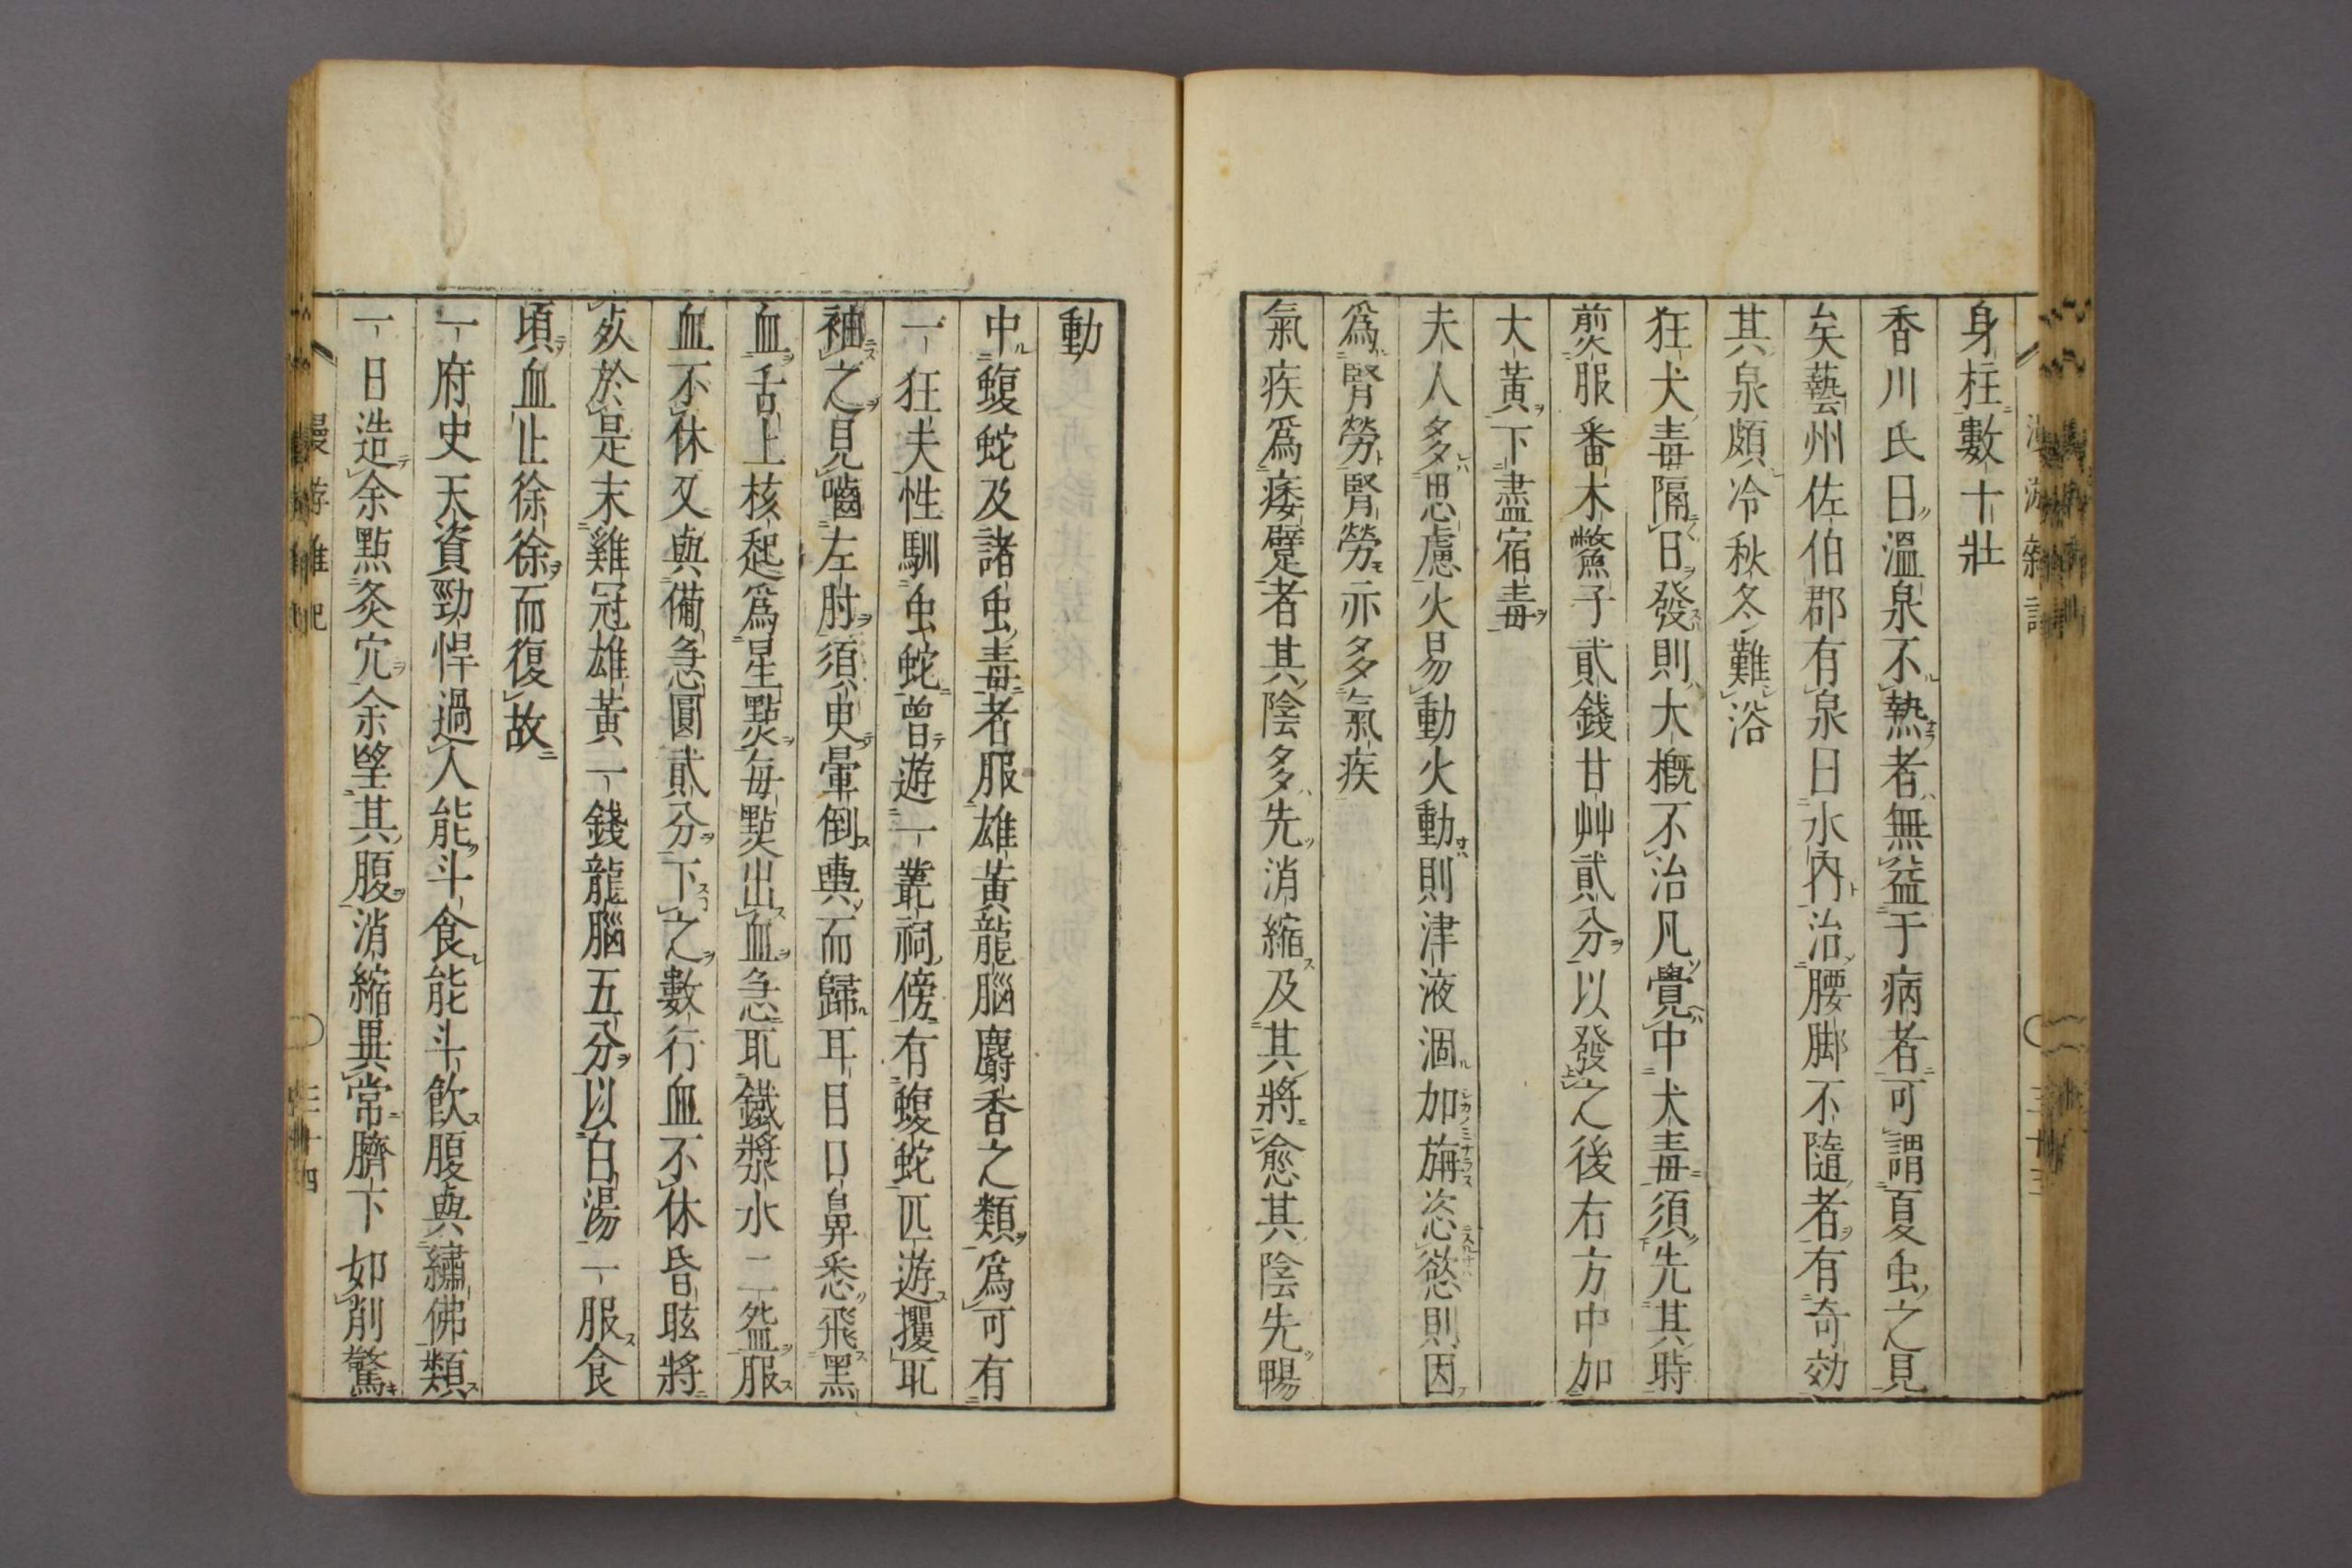 身柱數十壯
香川氏曰溫泉不熱者無益于病者可謂夏虫之見
矣藝州佐伯郡有泉曰水內治腰脚不隨者有奇効
其泉頗冷秋冬難浴
狂犬毒隔日發則大槪不治凡覺中犬毒須先其時
煎服番木鱉子貳錢甘艸貳分以發之後右方中加
大黃下盡宿毒
夫人多思慮火易動火動則津液涸加旃恣慾則因
爲腎勞腎勞亦多氣疾
氣疾爲痿躄者其陰多先消縮及其將愈其陰先暢
動
中蝮蛇及諸虫毒者服雄黃龍腦麝香之類爲可有
一狂夫性馴虫蛇曾遊一叢祠傍有蝮蛇匹遊攫取
袖之見嚙左肘須臾暈倒輿而歸耳目口鼻悉飛黑
血舌上核起爲星點每點出血急取鐵漿水二盌服
血不休又與備急圓貳分下之數行血不休昏眩將
死於是末雞冠雄黃一錢龍腦五分以白湯一服食
頃血止徐徐而復故
一府史天資勁悍過人能斗食能斗飲腹與繡佛類
一日造余點灸穴余望其腹消縮異常臍下如削驚
漫遊雜記
三十四